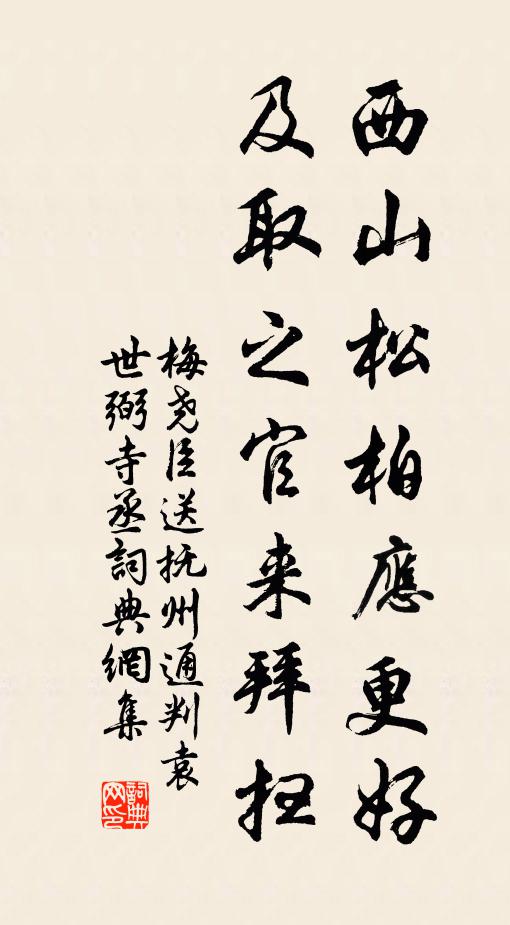 西山松柏應更好
及取之官来拜扫
梅尧臣送抚州通判袁
世弼寺丞詞典網集
詞典网印